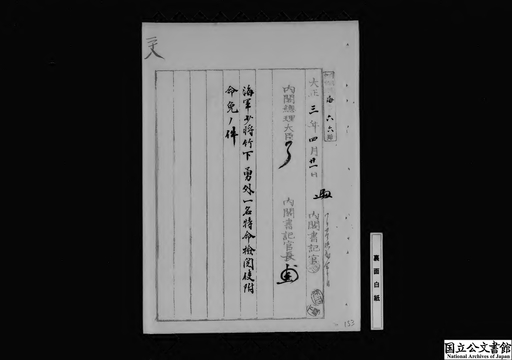 大正三年四月廿一日
内閣書記官
内閣総理大臣
内閣書記官長
海軍少将竹下勇外一名特命検閲使附
命免ノ件
裏面白紙
183
国立公文書館
National Archives of Japan